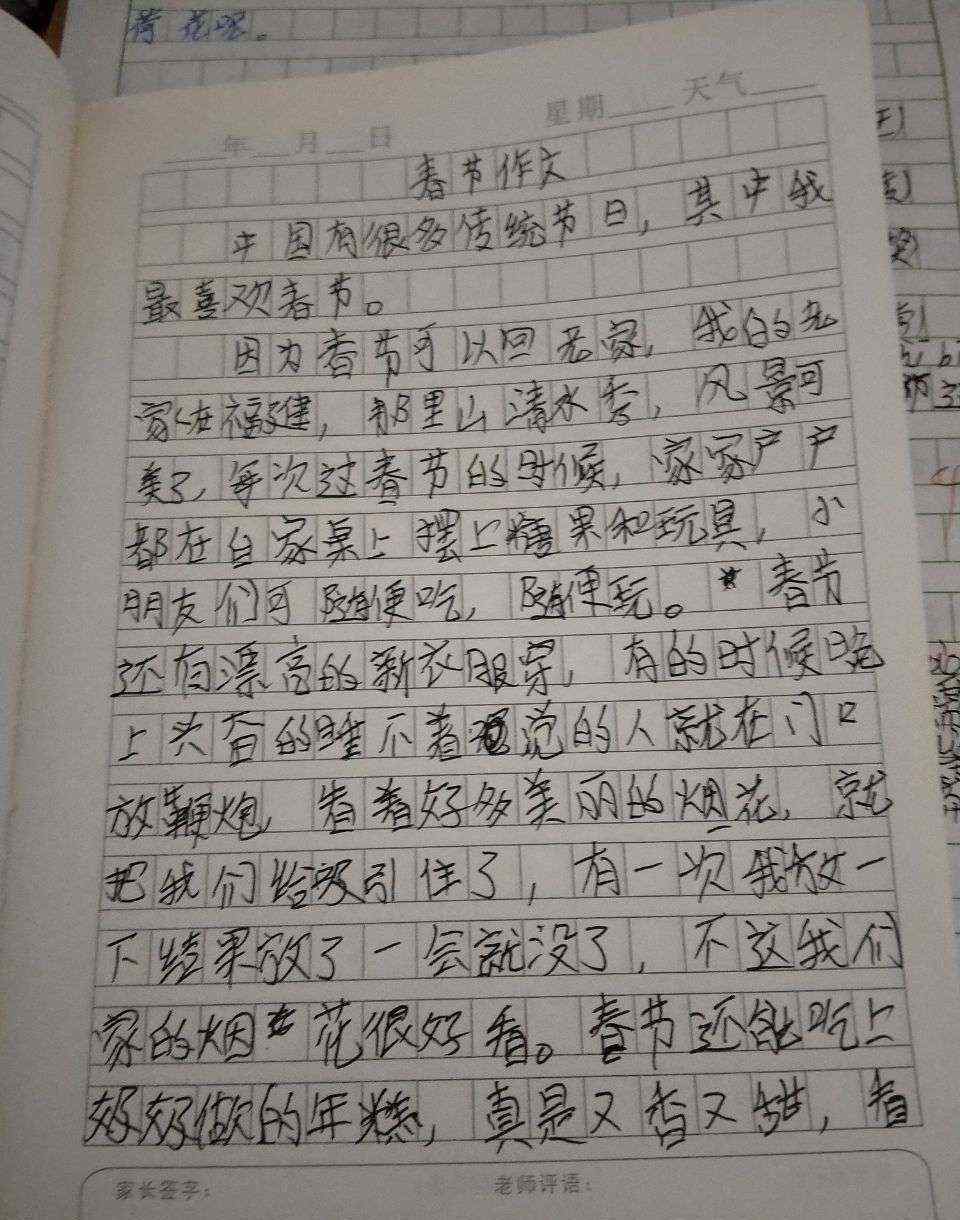 荷花呢。
年 月 日 星期 天气
春节作文
中国有很多传统节日，其中我
最喜欢春节。
因为春节可以回老家，我的老
家在福建，那里山清水秀，风景可
美了，每次过春节的时候，家家户户
都在自家桌上摆上糖果和玩具，小
朋友们可随便吃，随便玩。春节
还有漂亮的新衣服穿，有的时候晚
上头台的睡不着觉的人就在门口
放鞭炮，看着好多美丽的烟花，就
把我们给吸引住了，有一次我放一
下结果放了一会就没了，不这我们
家的烟花很好看。春节还能吃上
好好做的年糕，真是又香又甜，看
家长签字： 老师评语：